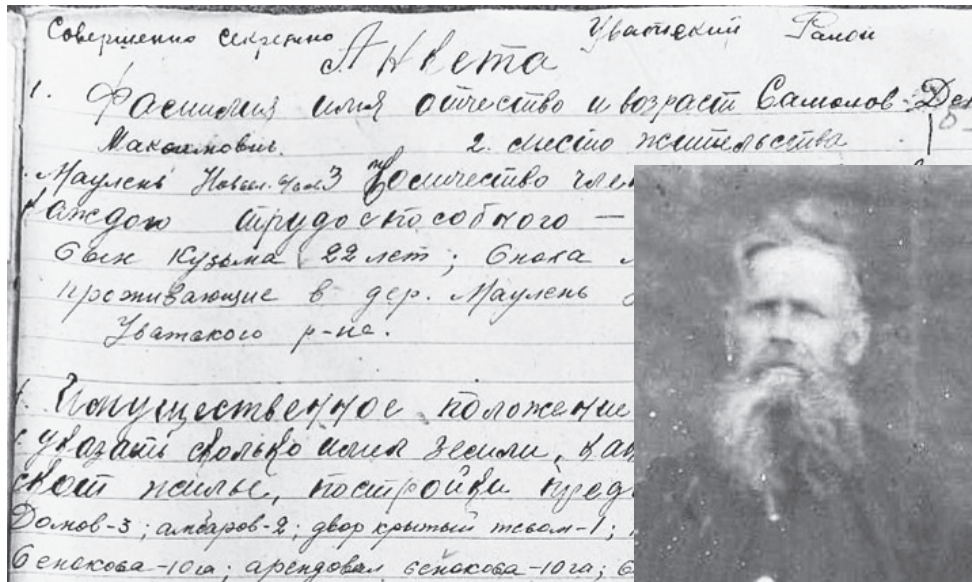 Совершенно секретно Уватский Район
Анкета
1. Фамилия имя отчество и возраст Самолов
Максимович. 2. место жительства
Маулень 3 Количество
каждого трудоспособного —
Сын Кузьма 22 лет; Сноха
проживающие в дер. Маулень
Уватского р-на.
Имущественное положение
указать сколько имел земли,
скот жилье, постройки
Домов-3; амбаров-2; двор крытый тесом-1;
Сенокова-10га; арендовал сенокова-10га;